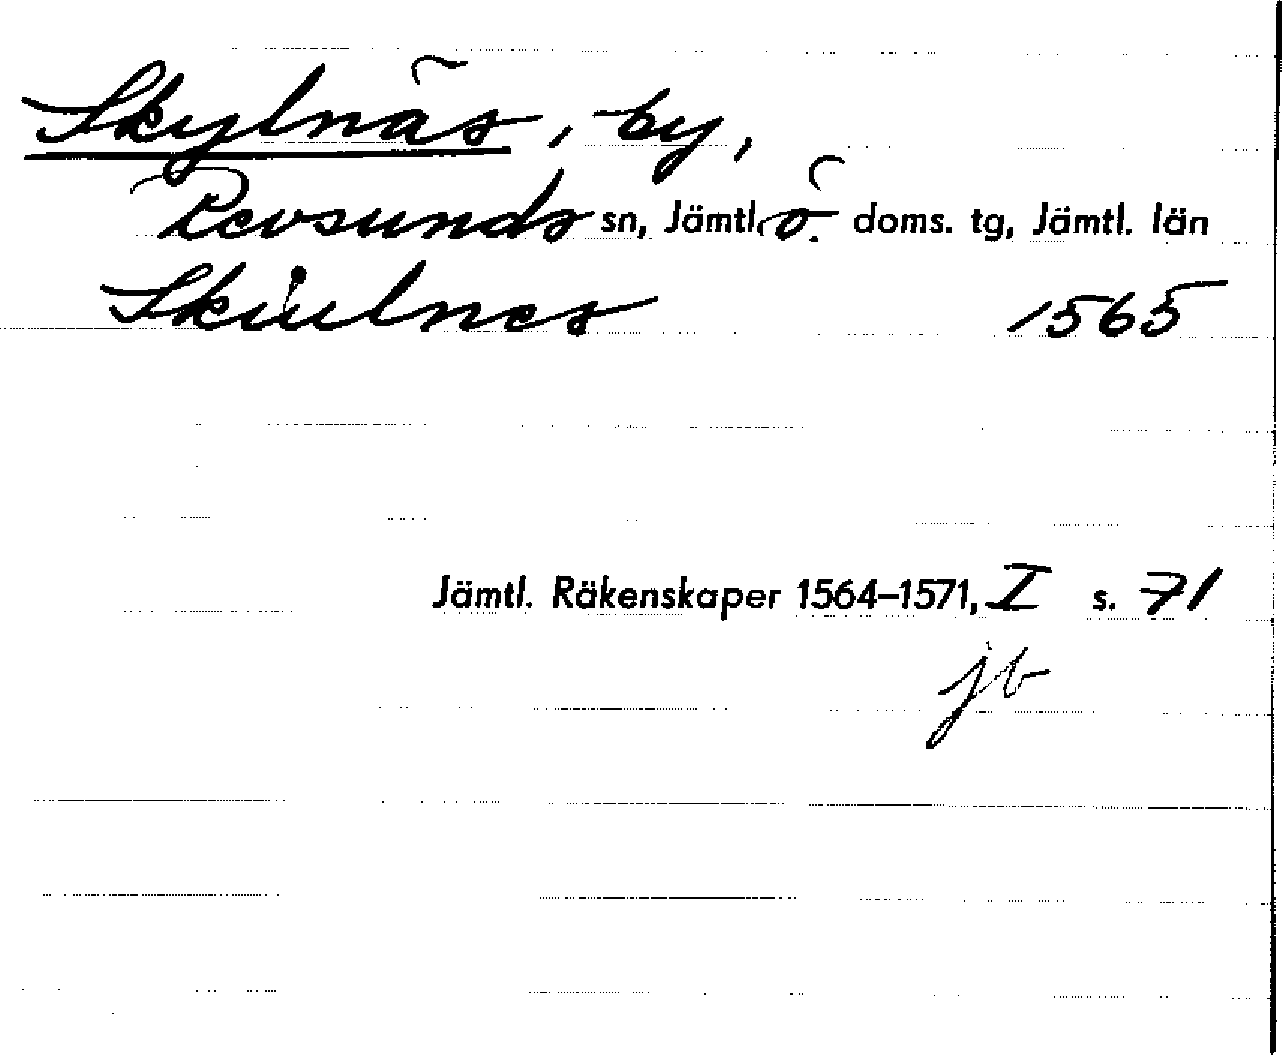 Skylnäs, by,
Revsunds sn, Jämtl. ö. doms. tg, Jämtl. län
Skiulnes 1565
Jämtl. Räkenskaper 1564–1571, I s. 71
jb